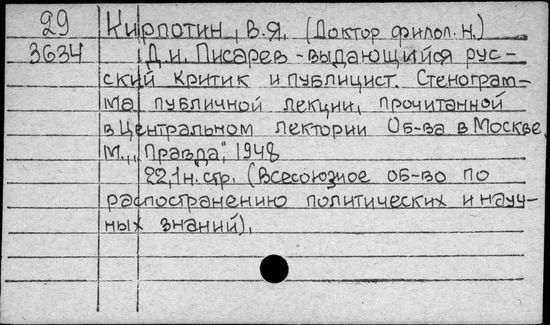 29 Кирпотин, В.Я. (Доктор филол. н.)
3634 Д.И. Писарев - выдающийся рус-
ский критик и публицист. Стенограм-
ма публичной лекции, прочитанной
в Центральном лектории Об-ва в Москве
М., „Правда", 1948
22,1 н. стр. (Всесоюзное об-во по
распостранению политических и науч-
ных знаний).